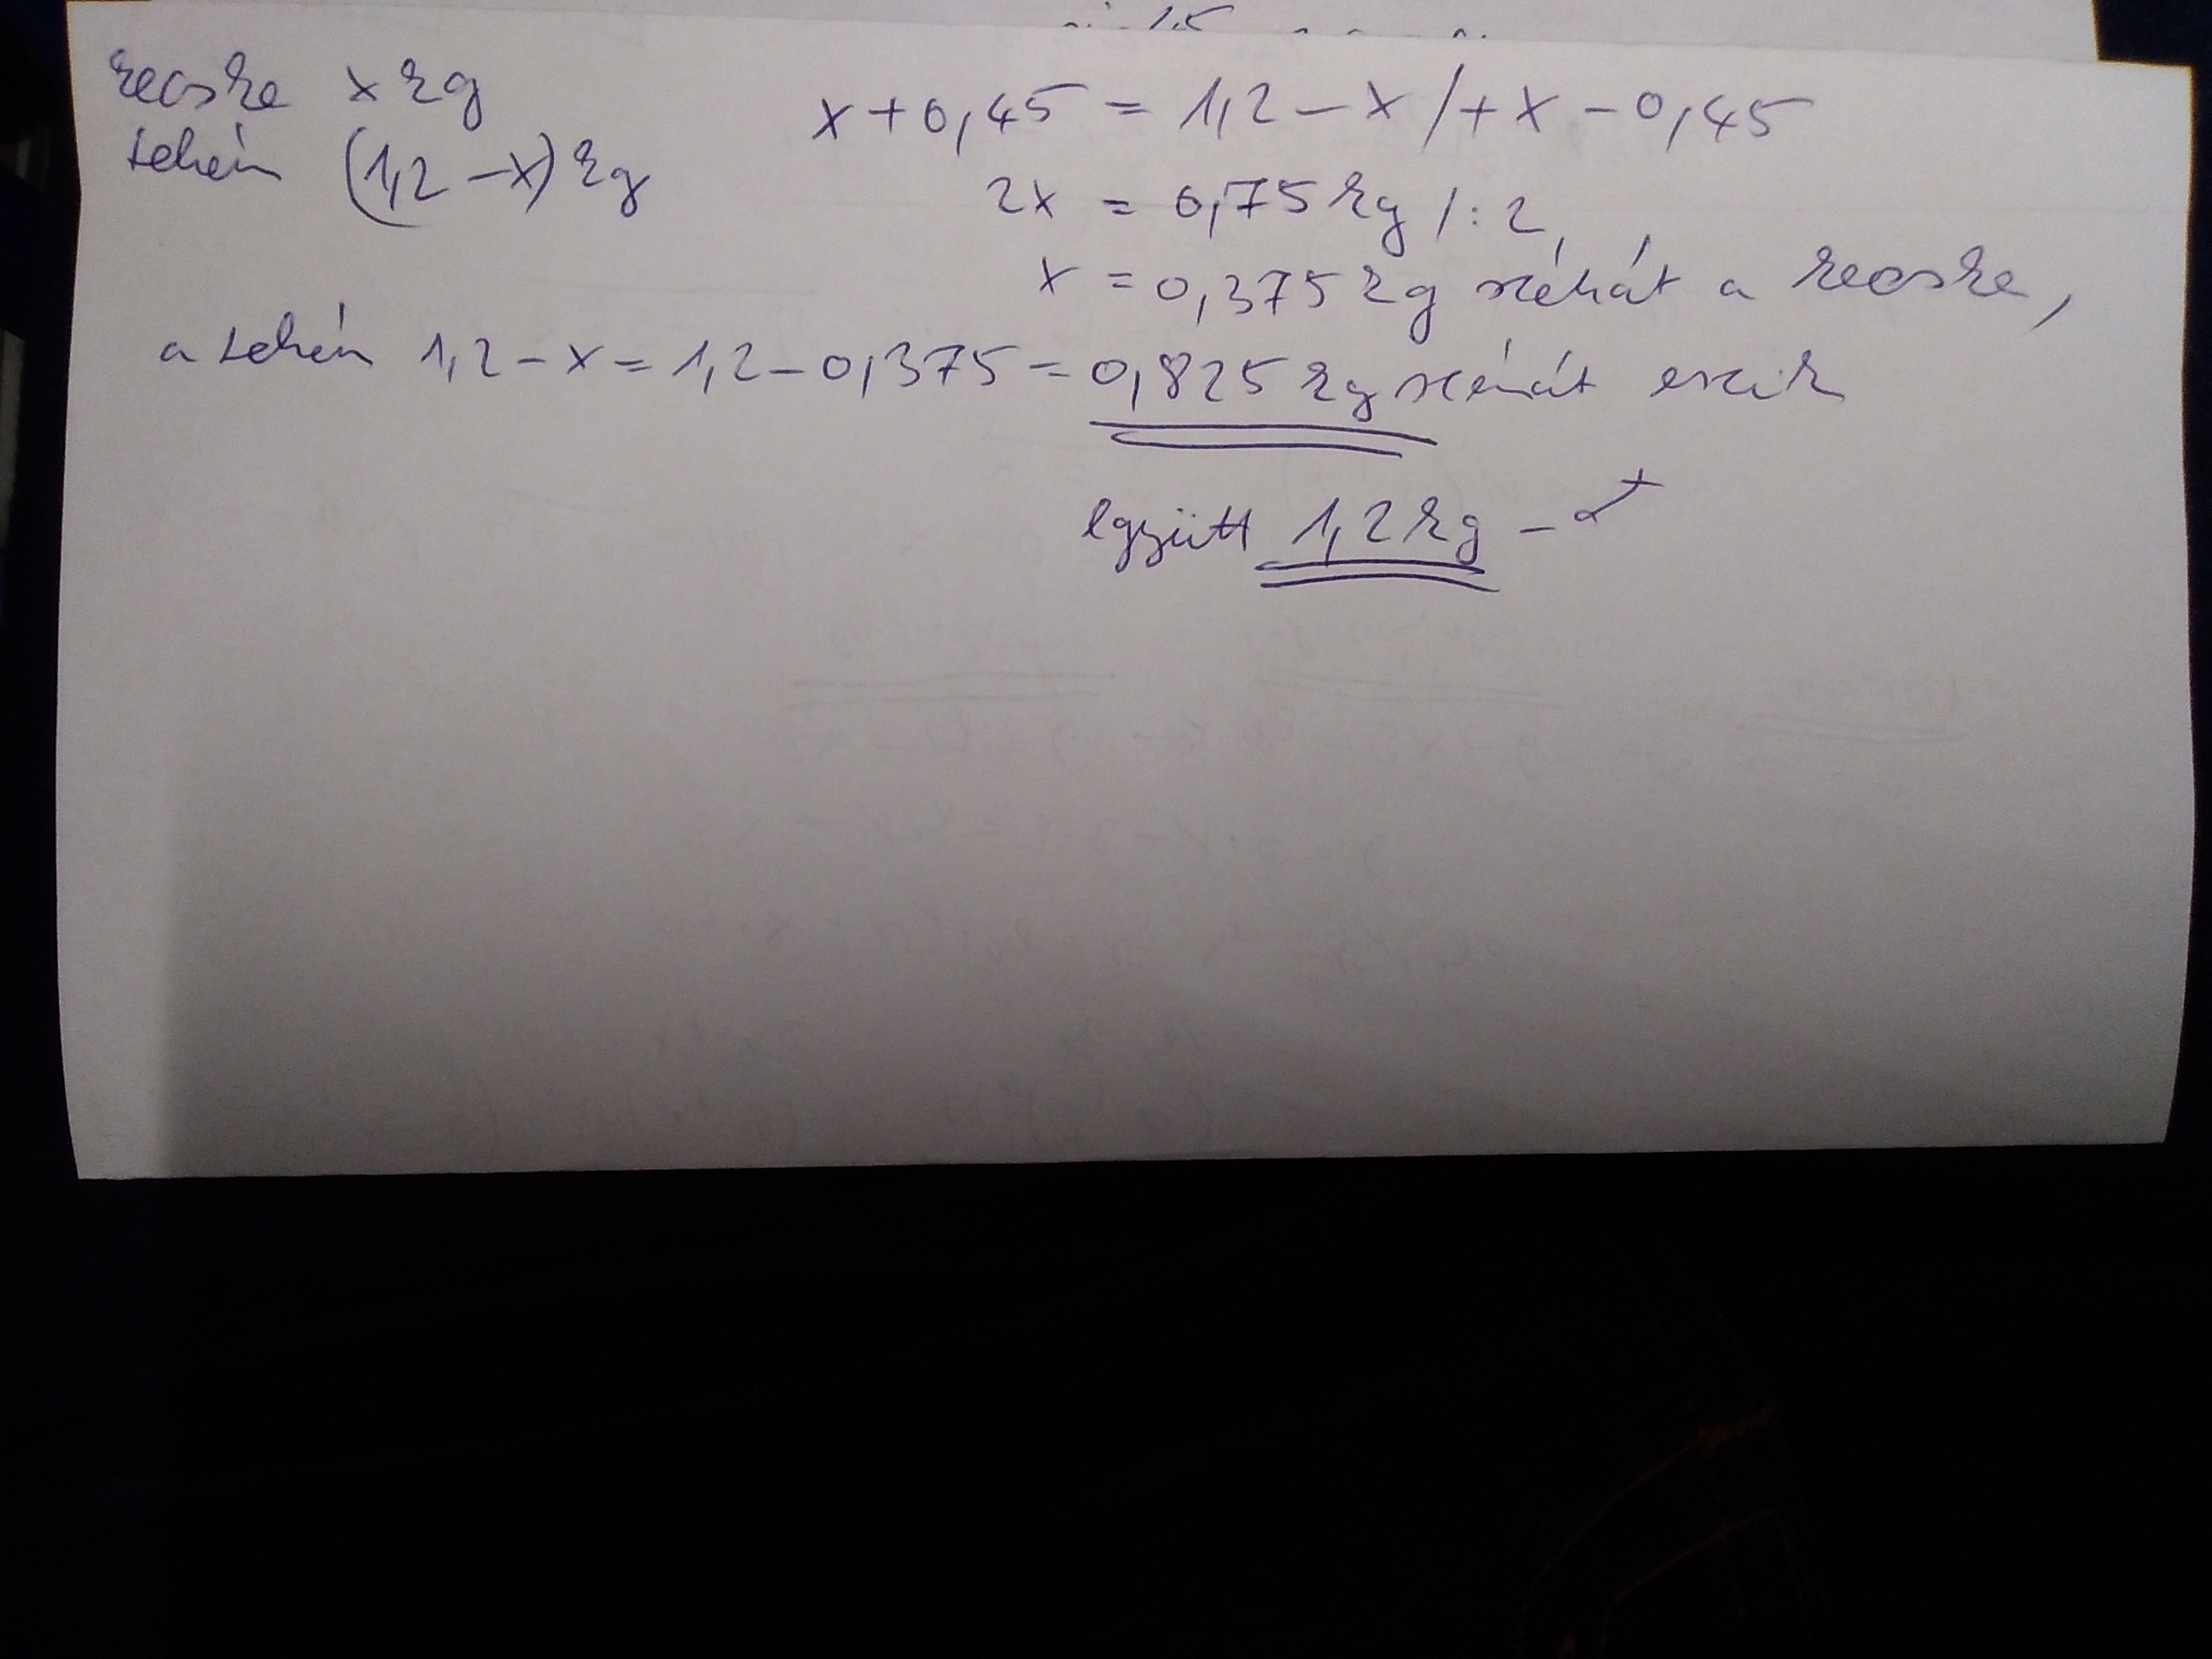 kecske x kg
tehén (1,2 – x) kg
x + 0,45 = 1,2 – x / + x – 0,45
2x = 0,75 kg / : 2
x = 0,375 kg szénát a kecske,
a tehén 1,2 – x = 1,2 – 0,375 = 0,825 kg szénát eszik
együtt 1,2 kg –